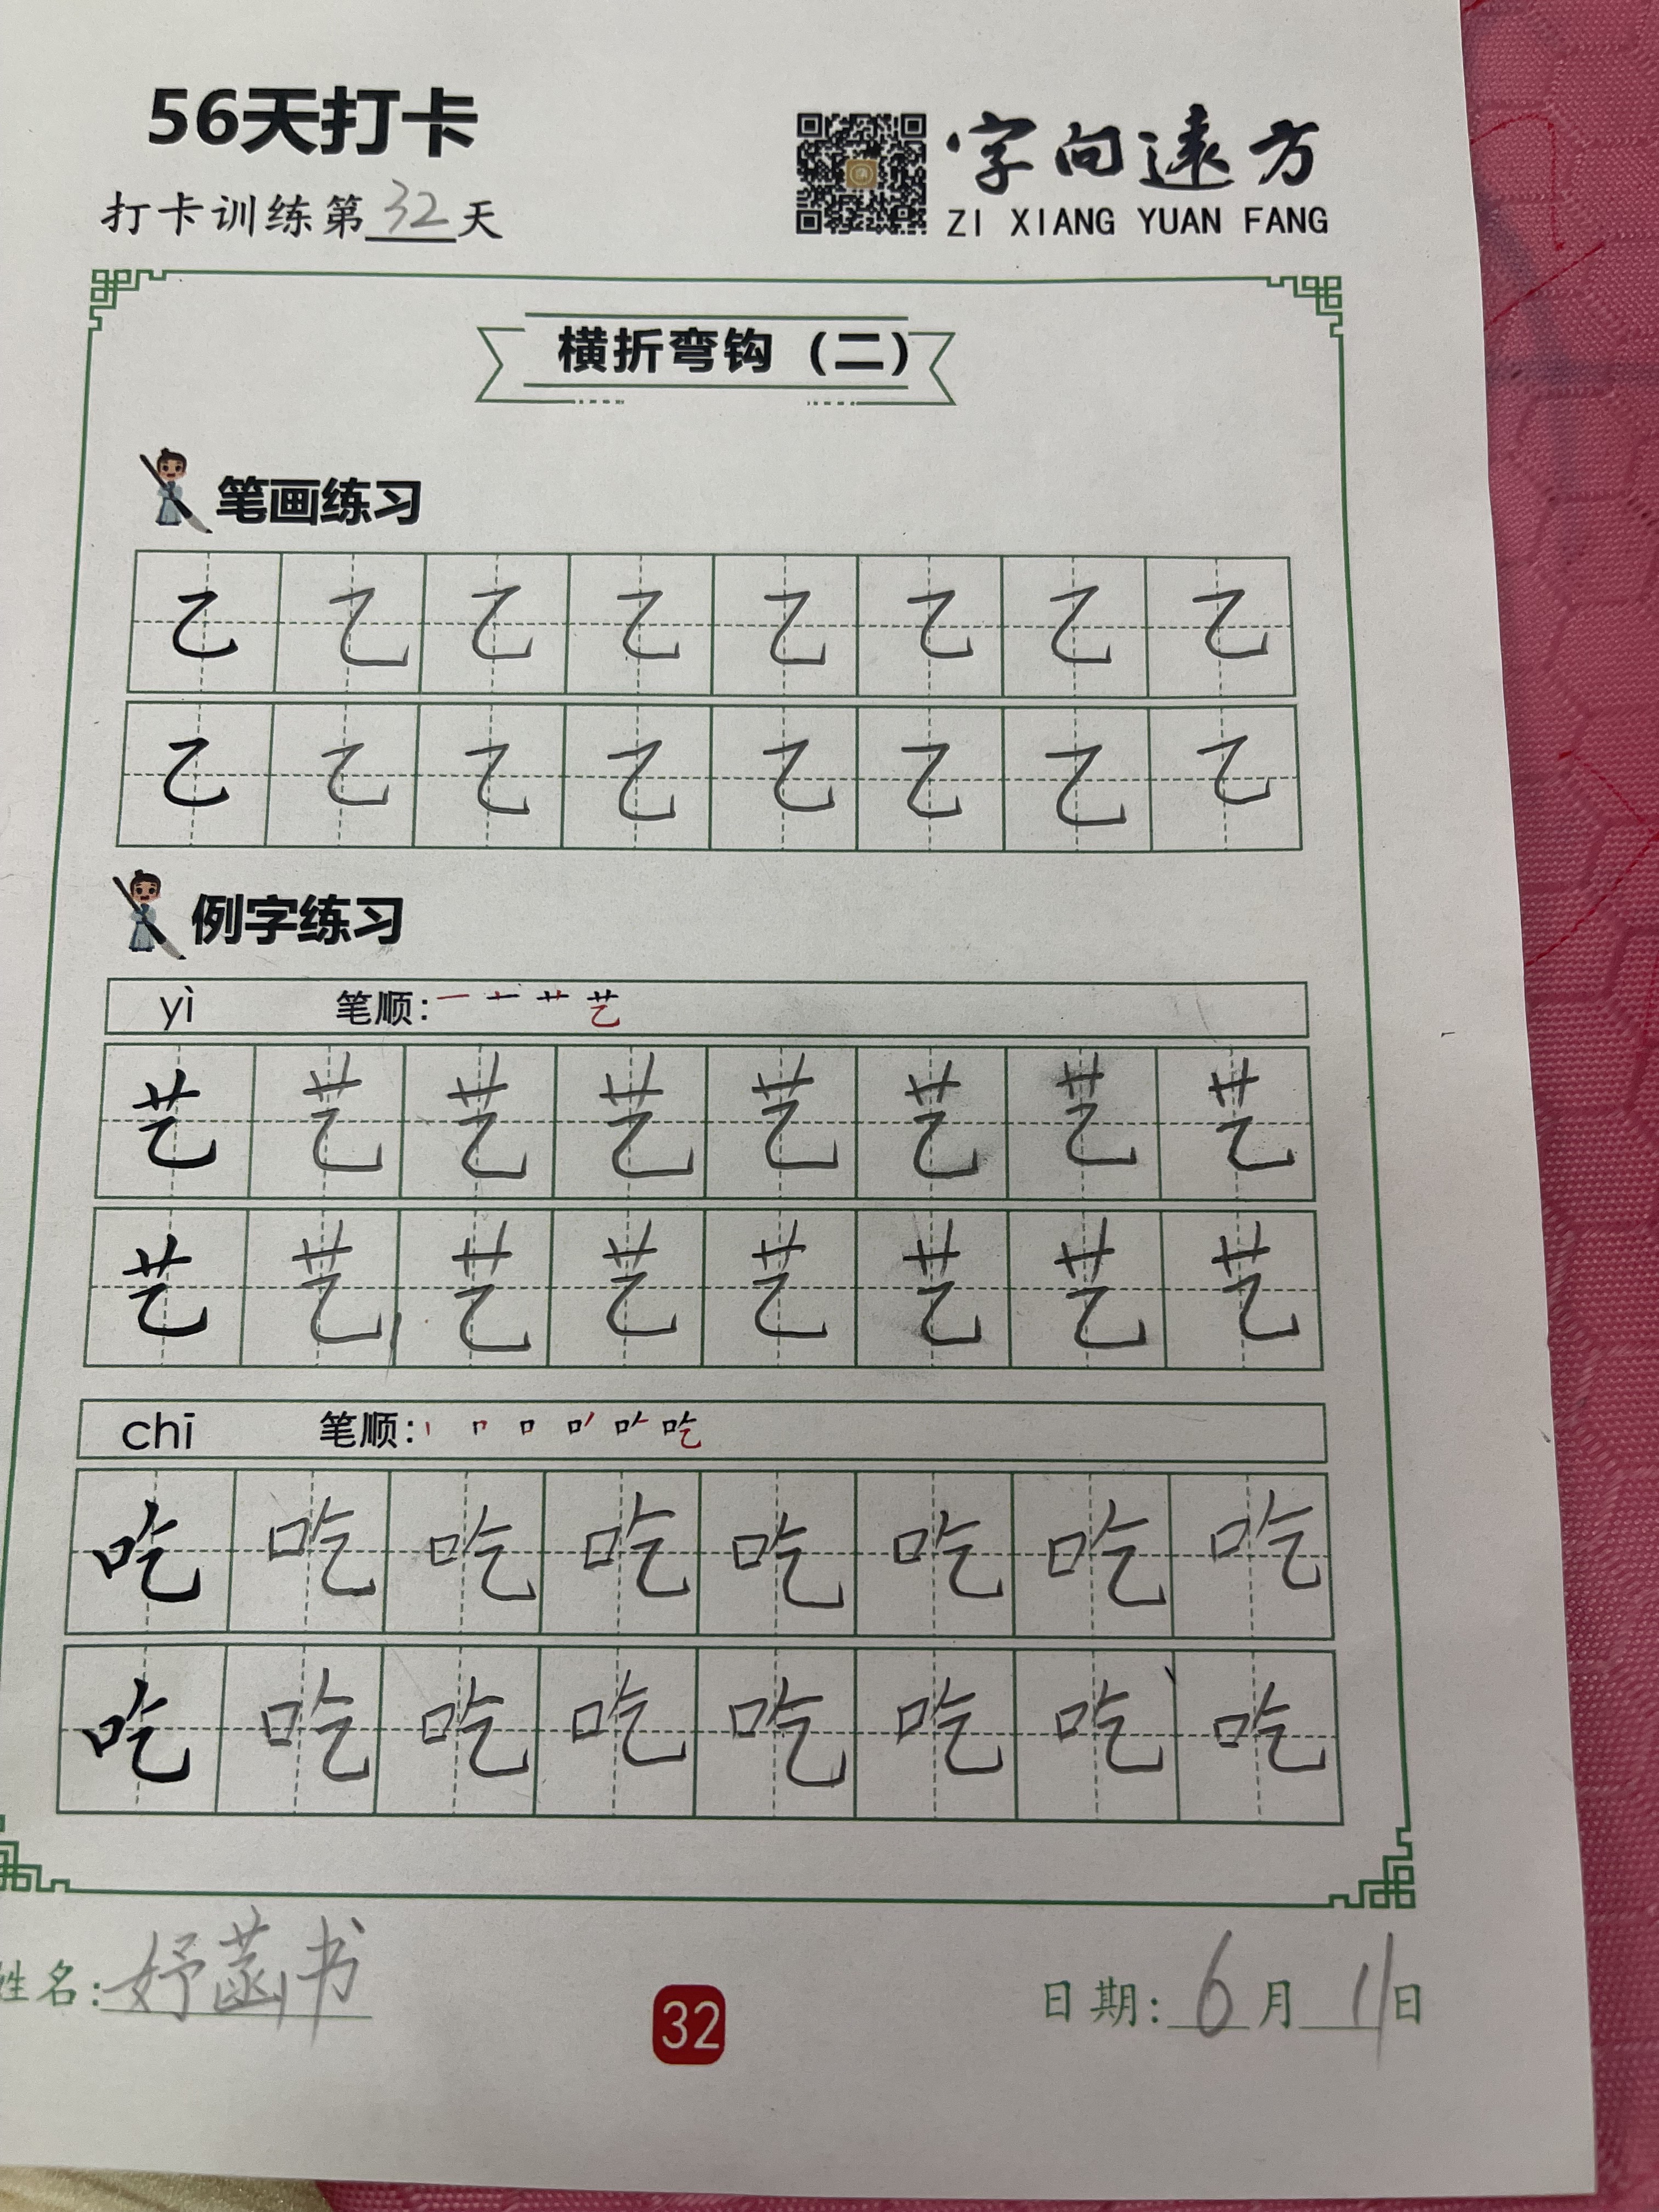 56天打卡
字向遠方
打卡训练第32天
ZI XIANG YUAN FANG
横折弯钩（二）
笔画练习
乙 乙 乙 乙 乙 乙 乙 乙
乙 乙 乙 乙 乙 乙 乙 乙
例字练习
yì 笔顺: 一 十 艹 艺
艺 艺 艺 艺 艺 艺 艺 艺
艺 艺 艺 艺 艺 艺 艺 艺
chī 笔顺: 丨 口 吃
吃 吃 吃 吃 吃 吃 吃 吃
吃 吃 吃 吃 吃 吃 吃 吃
姓名: 妤菡书
32
日期: 6月11日